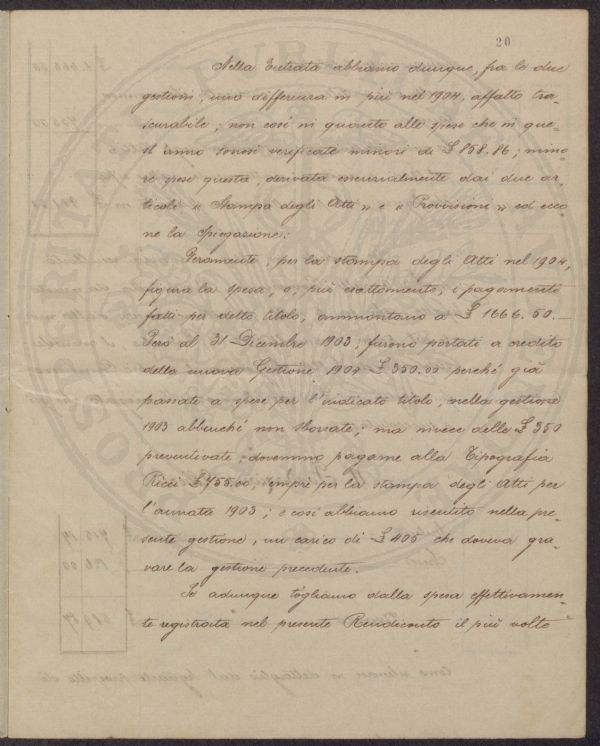 20
Nella Entrata abbiamo dunque, fra le due
gestioni, una differenza in più nel 1904, affatto tra-
scurabile; non così in quanto alle spese che in que-
st'anno sonosi verificate minori di £ 858.86; mino-
re spesa questa, derivata essenzialmente dai due ar-
ticoli « Stampa degli Atti » e « Provvisioni » ed ecco-
ne la spiegazione:
Veramente, per la stampa degli Atti nel 1904,
figura la spesa, o, più esattamente, i pagamenti
fatti per detto titolo, ammontano a £ 1666.50.—
Però al 31 Dicembre 1903, furono portate a credito
della nuova Gestione 1904 £ 350.00 perché già
passate a spese per l'indicato titolo, nella gestione
1903 abbenché non stovate; ma invece delle £ 350
preventivate, dovemmo pagarne alla Tipografia
Ricci £ 755.00, sempre per la stampa degli Atti per
l'annata 1903; e così abbiamo risentito nella pre-
sente gestione, un carico di £ 405 che doveva gra-
vare la gestione precedente.
Se adunque togliamo dalla spesa effettivamen-
te registrata nel presente Rendiconto il più volte